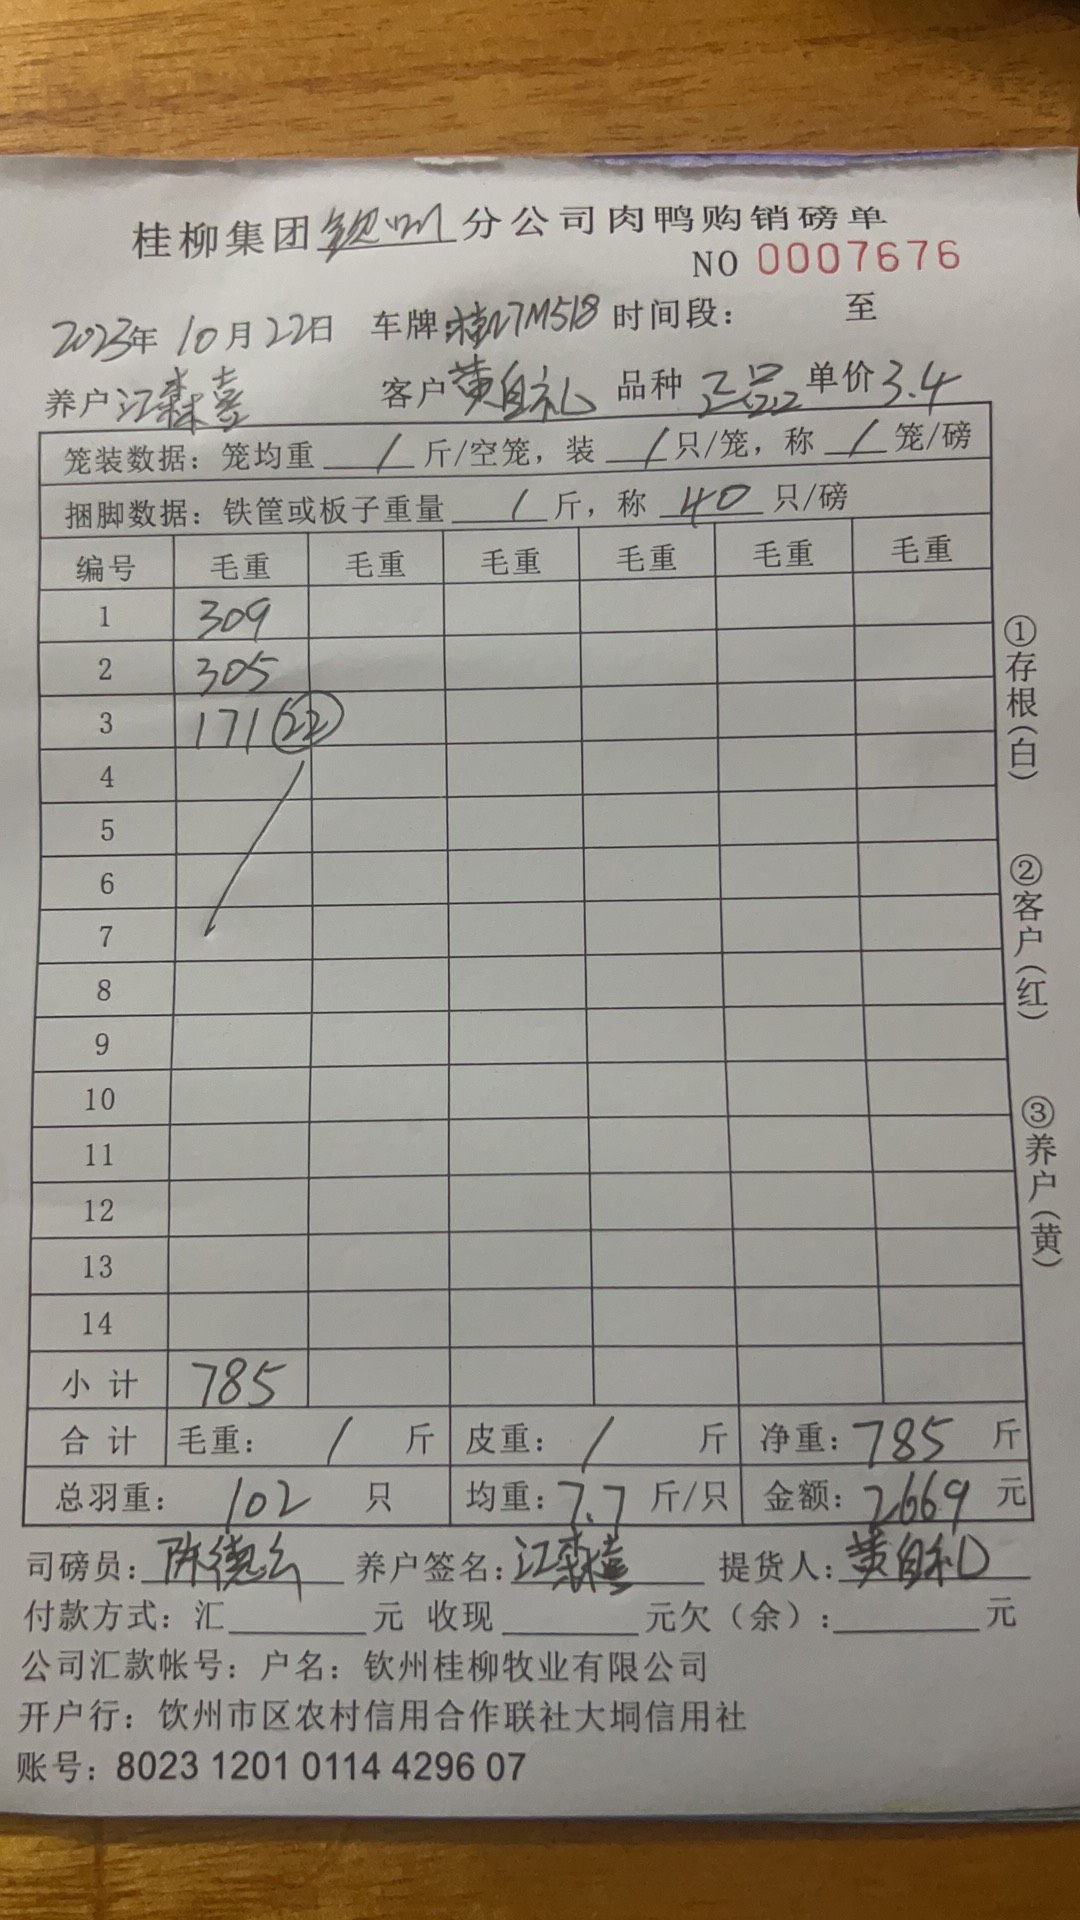 桂柳集团钦州分公司肉鸭购销磅单
NO 0007676
2023年10月22日 车牌:桂N7M518 时间段: 至
养户 江森喜 客户 黄自礼 品种 正品 单价 3.4
笼装数据:笼均重 / 斤/空笼,装 / 只/笼,称 / 笼/磅
捆脚数据:铁筐或板子重量 / 斤,称 40 只/磅
编号 毛重 毛重 毛重 毛重 毛重 毛重
1 309
2 305
3 171 22
4
5
6
7
8
9
10
11
12
13
14
小计 785
合计 毛重: / 斤 皮重: / 斤 净重:785 斤
总羽重: 102 只 均重:7.7 斤/只 金额:2669 元
司磅员:陈德么 养户签名:江森喜 提货人:黄自礼
付款方式:汇 元 收现 元欠(余): 元
公司汇款帐号:户名:钦州桂柳牧业有限公司
开户行:钦州市区农村信用合作联社大垌信用社
账号:8023 1201 0114 4296 07
①存根(白)
②客户(红)
③养户(黄)